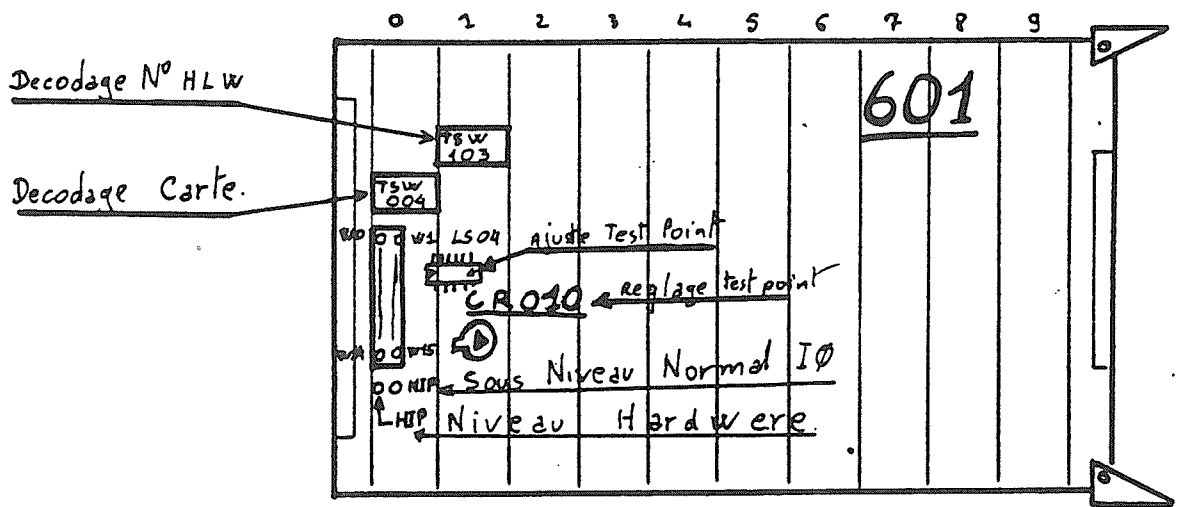 0 1 2 3 4 5 6 7 8 9
Decodage N° HLW
601
TSW
103
Decodage Carte.
TSW
004
W1 LS04 Ajuste Test Point
CR010 Reglage testpoint
W15
HIP Sous Niveau Normal IØ
HIP Niveau Hardwere.